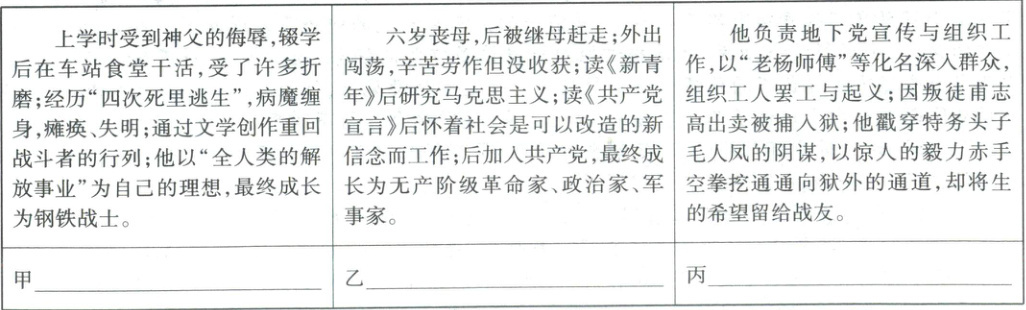 上学时受到神父的侮辱,辍学
后在车站食堂干活,受了许多折
磨;经历“四次死里逃生”,病魔缠
身,瘫痪、失明;通过文学创作重回
战斗者的行列;他以“全人类的解
放事业”为自己的理想,最终成长
为钢铁战士。
六岁丧母,后被继母赶走;外出
闯荡,辛苦劳作但没收获;读《新青
年》后研究马克思主义;读《共产党
宣言》后怀着社会是可以改造的新
信念而工作;后加入共产党,最终成
长为无产阶级革命家、政治家、军
事家。
他负责地下党宣传与组织工
作,以“老杨师傅”等化名深入群众,
组织工人罢工与起义;因叛徒甫志
高出卖被捕入狱;他戳穿特务头子
毛人凤的阴谋,以惊人的毅力赤手
空拳挖通通向狱外的通道,却将生
的希望留给战友。
甲
乙
丙